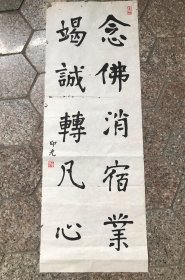 念佛消宿業
竭誠轉凡心
印光